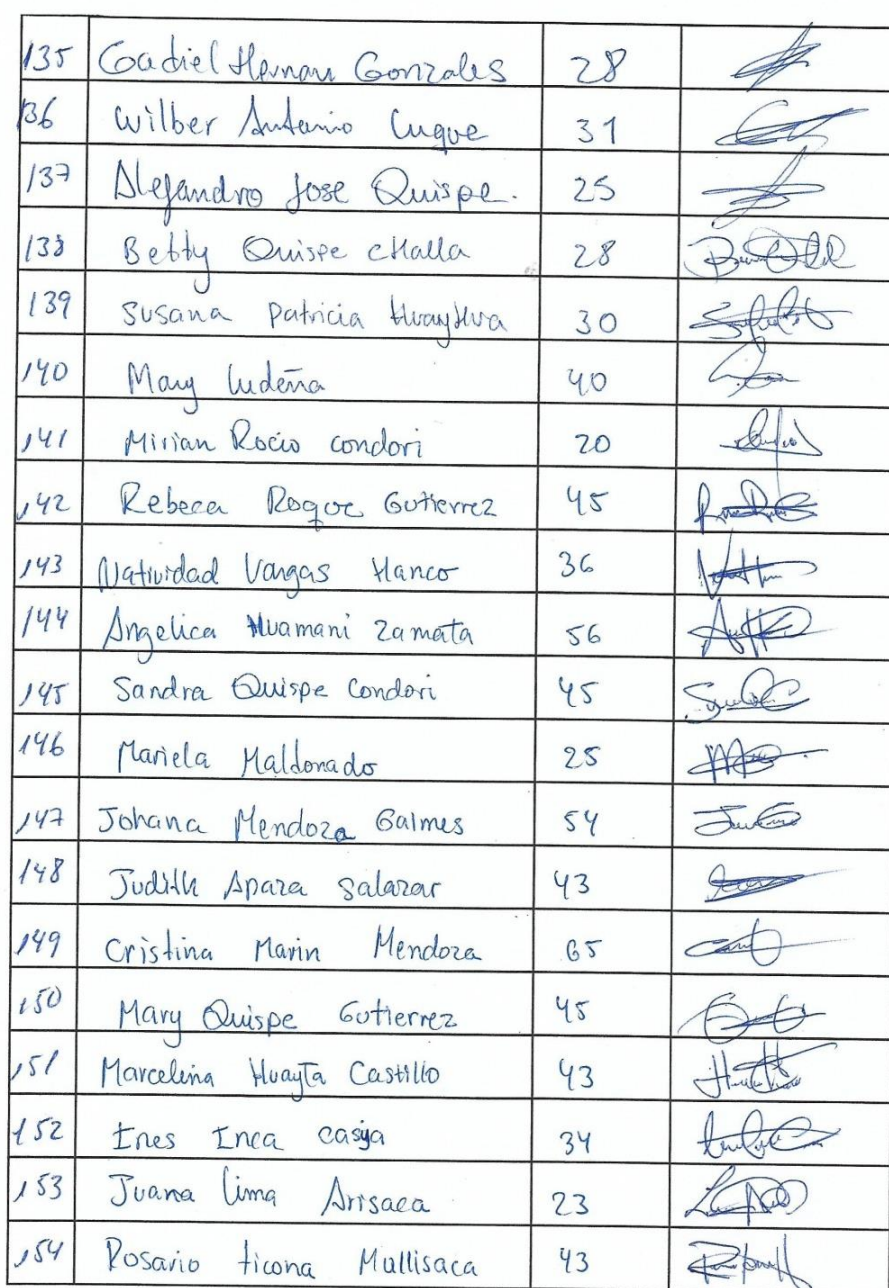 135 Gadiel Hernan Gonzales 28
136 Wilber Antonio Luque 31
137 Alejandro Jose Quispe. 25
138 Betty Quispe cHalla 28
139 Susana Patricia HuayHua 30
140 Mary ludeña 40
141 Mirian Rocio condori 20
142 Rebeca Roque Gutierrez 45
143 Natividad Vargas Hanco 36
144 Angelica Huamani Zamata 56
145 Sandra Quispe Condori 45
146 Mariela Maldonado 25
147 Johana Mendoza Galmes 54
148 Judith Apaza Salazar 43
149 Cristina Marin Mendoza 65
150 Mary Quispe Gutierrez 45
151 Marcelina Huayta Castillo 43
152 Ines Inca casya 34
153 Juana lima Arisaca 23
154 Rosario ticona Mullisaca 43